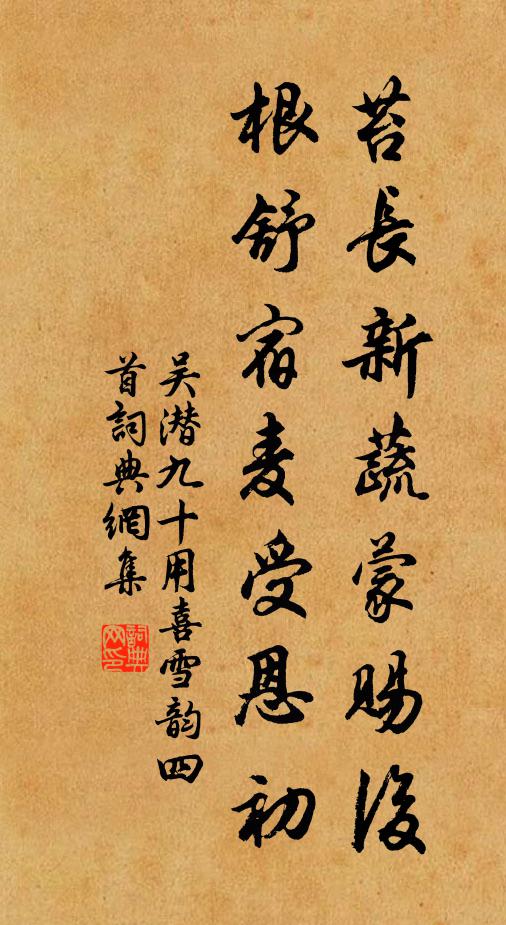 苔長新蔬蒙賜後
根舒宿麦受恩初
吴潜九十用喜雪韵四
首詞典網集
詞典
网印